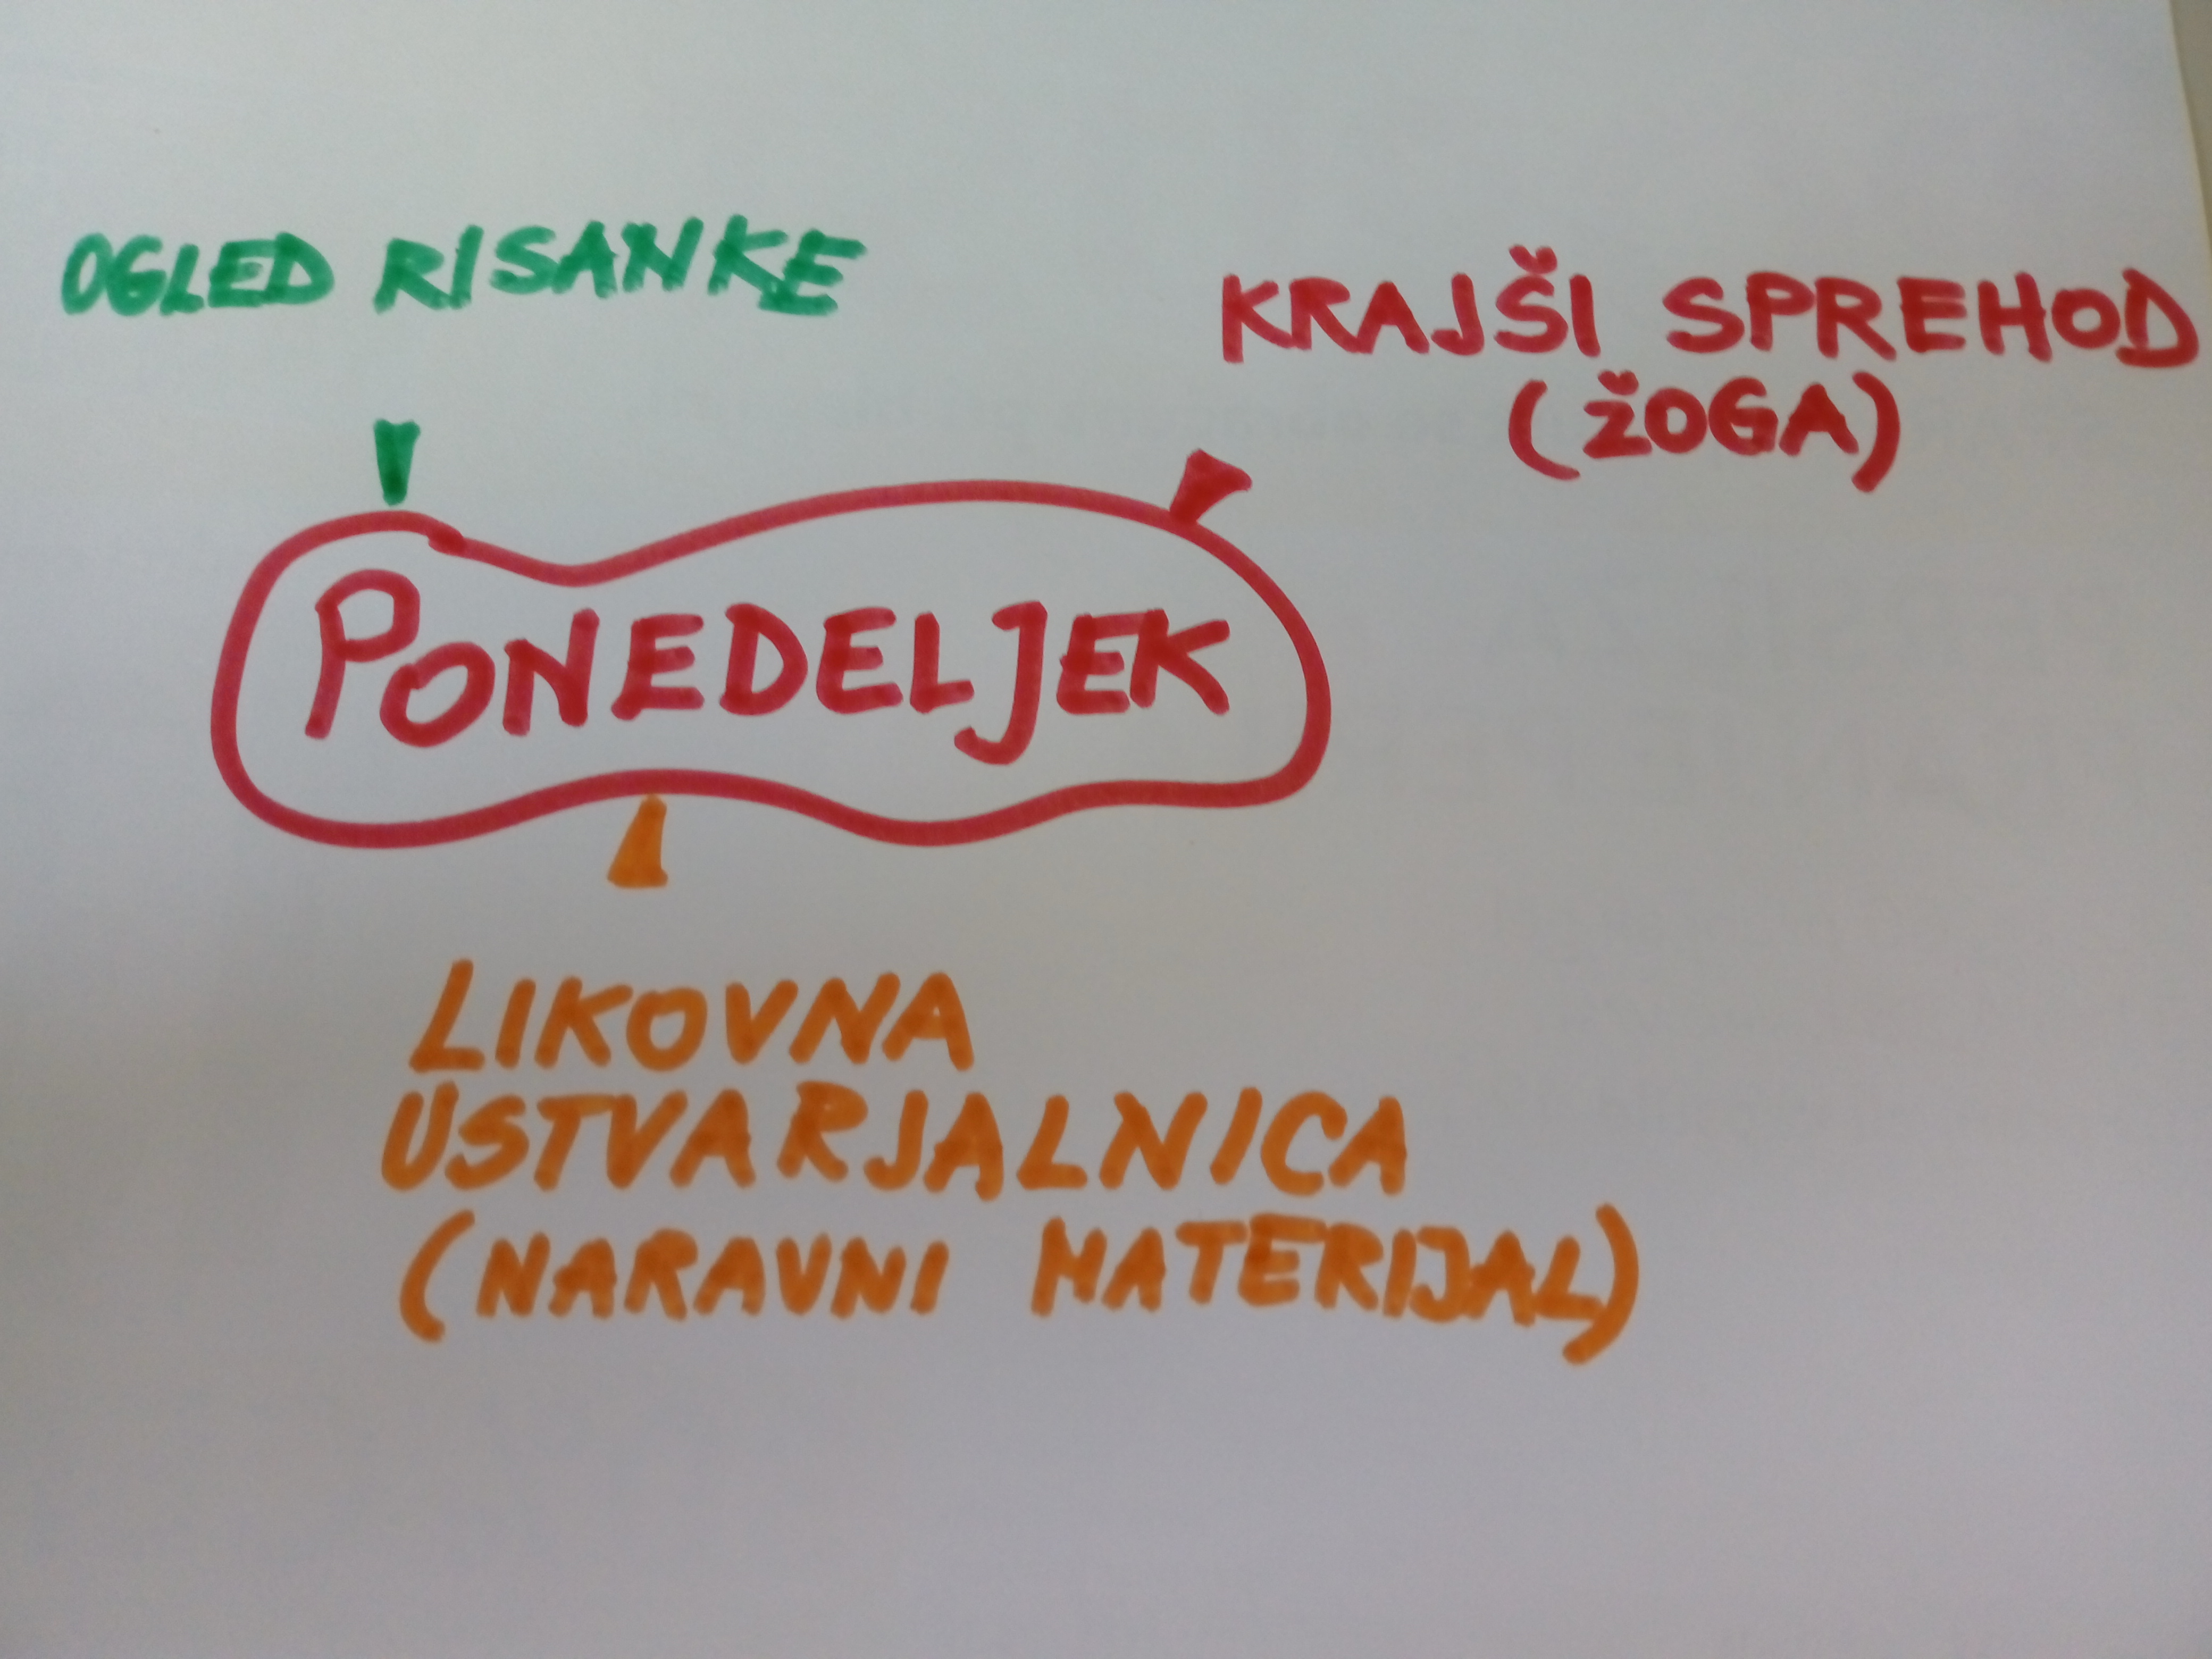 OGLED RISANKE
KRAJŠI SPREHOD
(ŽOGA)
PONEDELJEK
LIKOVNA
USTVARJALNICA
(NARAVNI MATERIJAL)